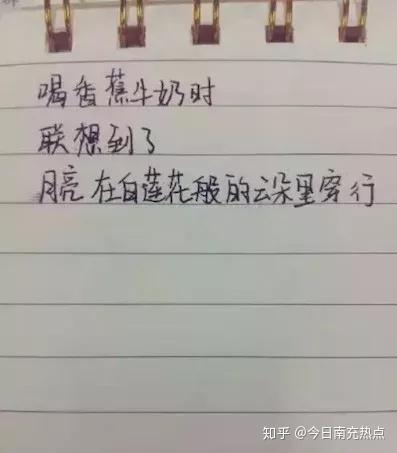 喝香蕉牛奶时
联想到了
月亮在白莲花般的云朵里穿行
知乎 @今日南充热点